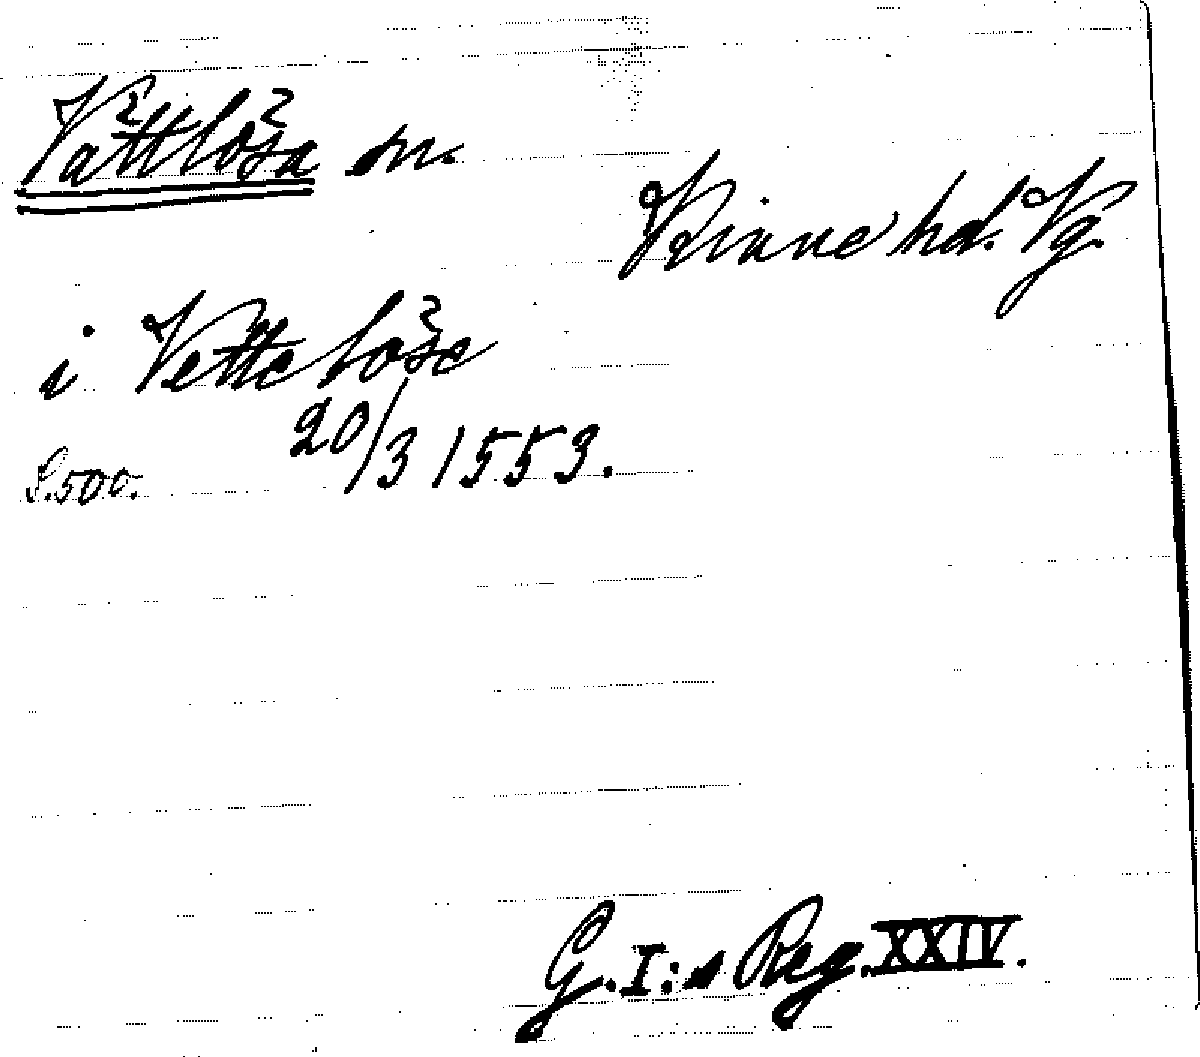 Vättlösa sn.
Kinne hd. Vg.
i Vettelöse
20/3 1553.
S. 500.
G. I:s Reg. XXIV.